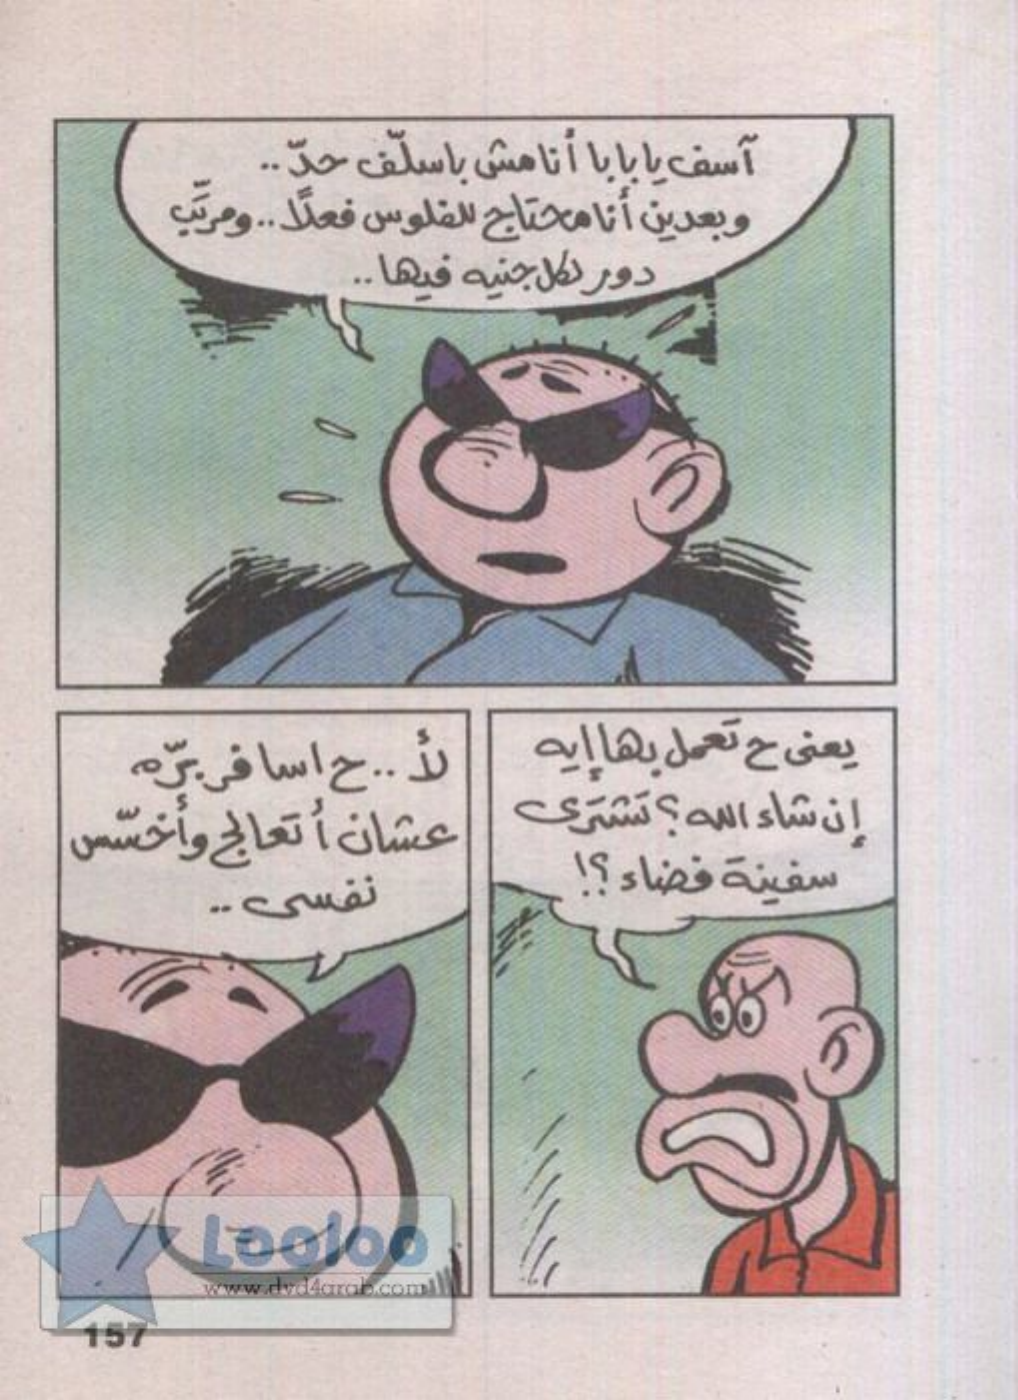 آسف يا بابا أنا مش باسلّف حدّ..
وبعدين أنا محتاج للفلوس فعلًا.. ومرتّب
دور لكل جنيه فيها..
يعنى ح تعمل بها إيه
إن شاء الله؟ تشترى
سفينة فضاء؟!
لأ.. ح اسافر برّه
عشان أتعالج وأخسّس
نفسى..
Looloo
www.dvd4arab.com
157